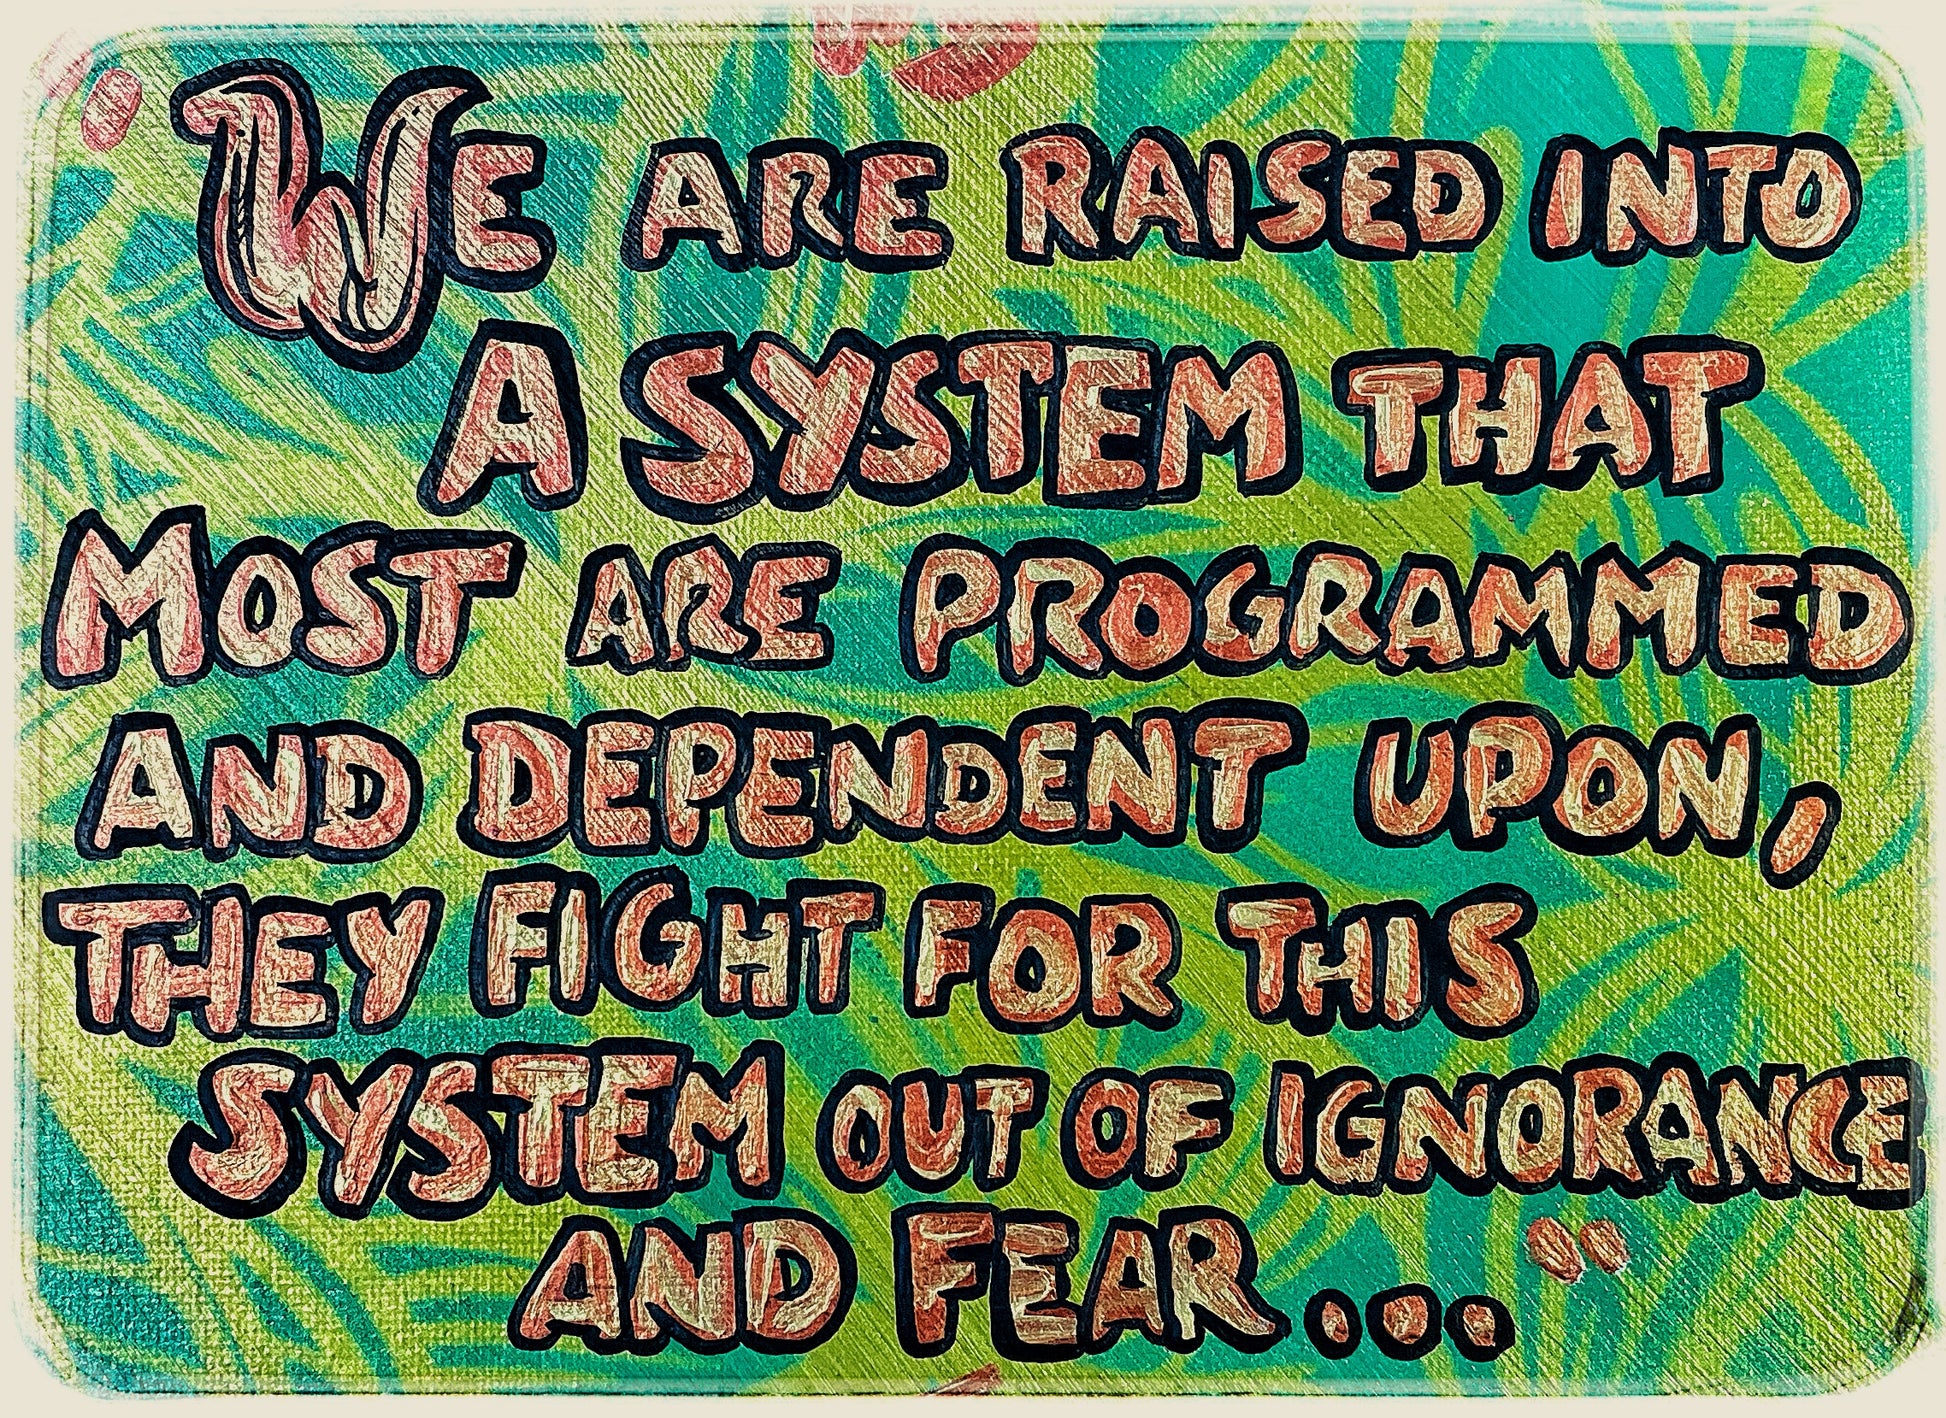 We are raised into
a system that
most are programmed
and dependent upon,
they fight for this
system out of ignorance
and fear..."